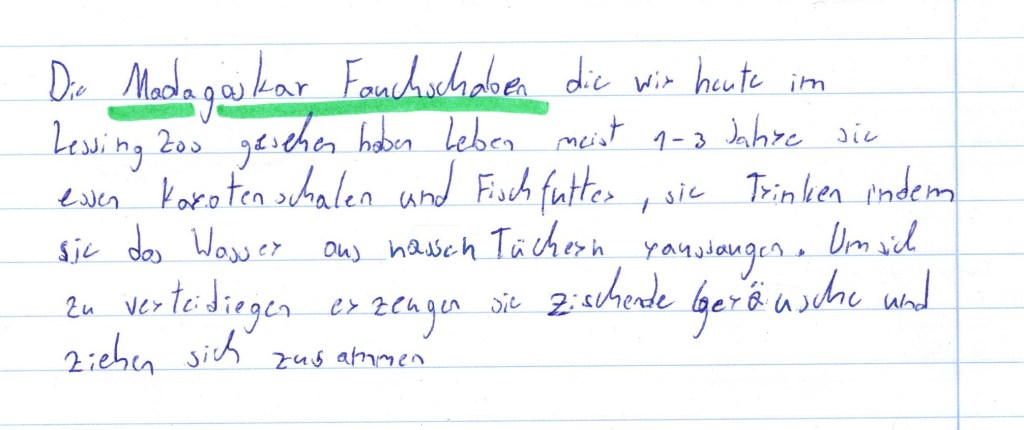 Die Madagaskar Fauchschaben die wir heute im
Lessing Zoo gesehen haben Leben meist 1-3 Jahre sie
essen Karotenschalen und Fischfutter, sie Trinken indem
sie das Wasser aus nassen Tüchern raussaugen. Um sich
zu verteidiegen erzeugen sie zischende Geräusche und
ziehen sich zusammen